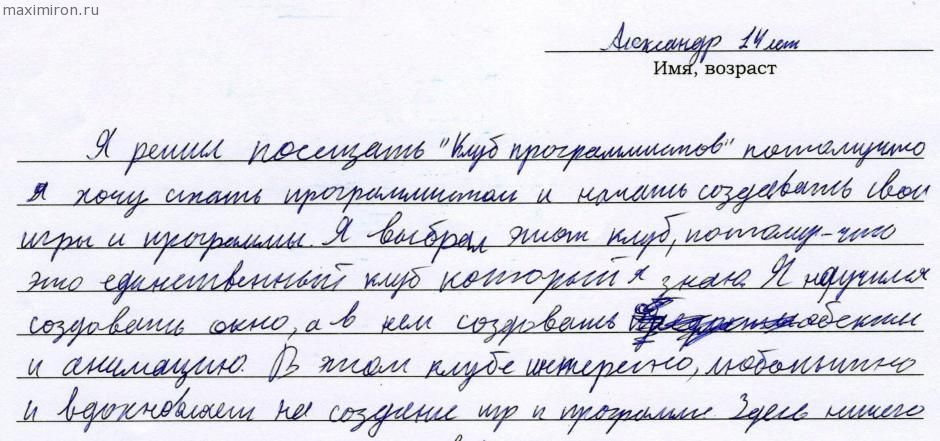 maximiron.ru
Александр 14 лет
Имя, возраст
Я решил посещать "Клуб программистов" потомучто
я хочу стать программистом и начать создавать свои
игры и программы. Я выбрал этот клуб, потому-что
это единственный клуб который я знаю. Я научился
создовать окно, а в нем создовать обекты
и анимацию. В этом клубе интересно, любопытно
и вдохновляет на создание игр и программ. Здесь ничего